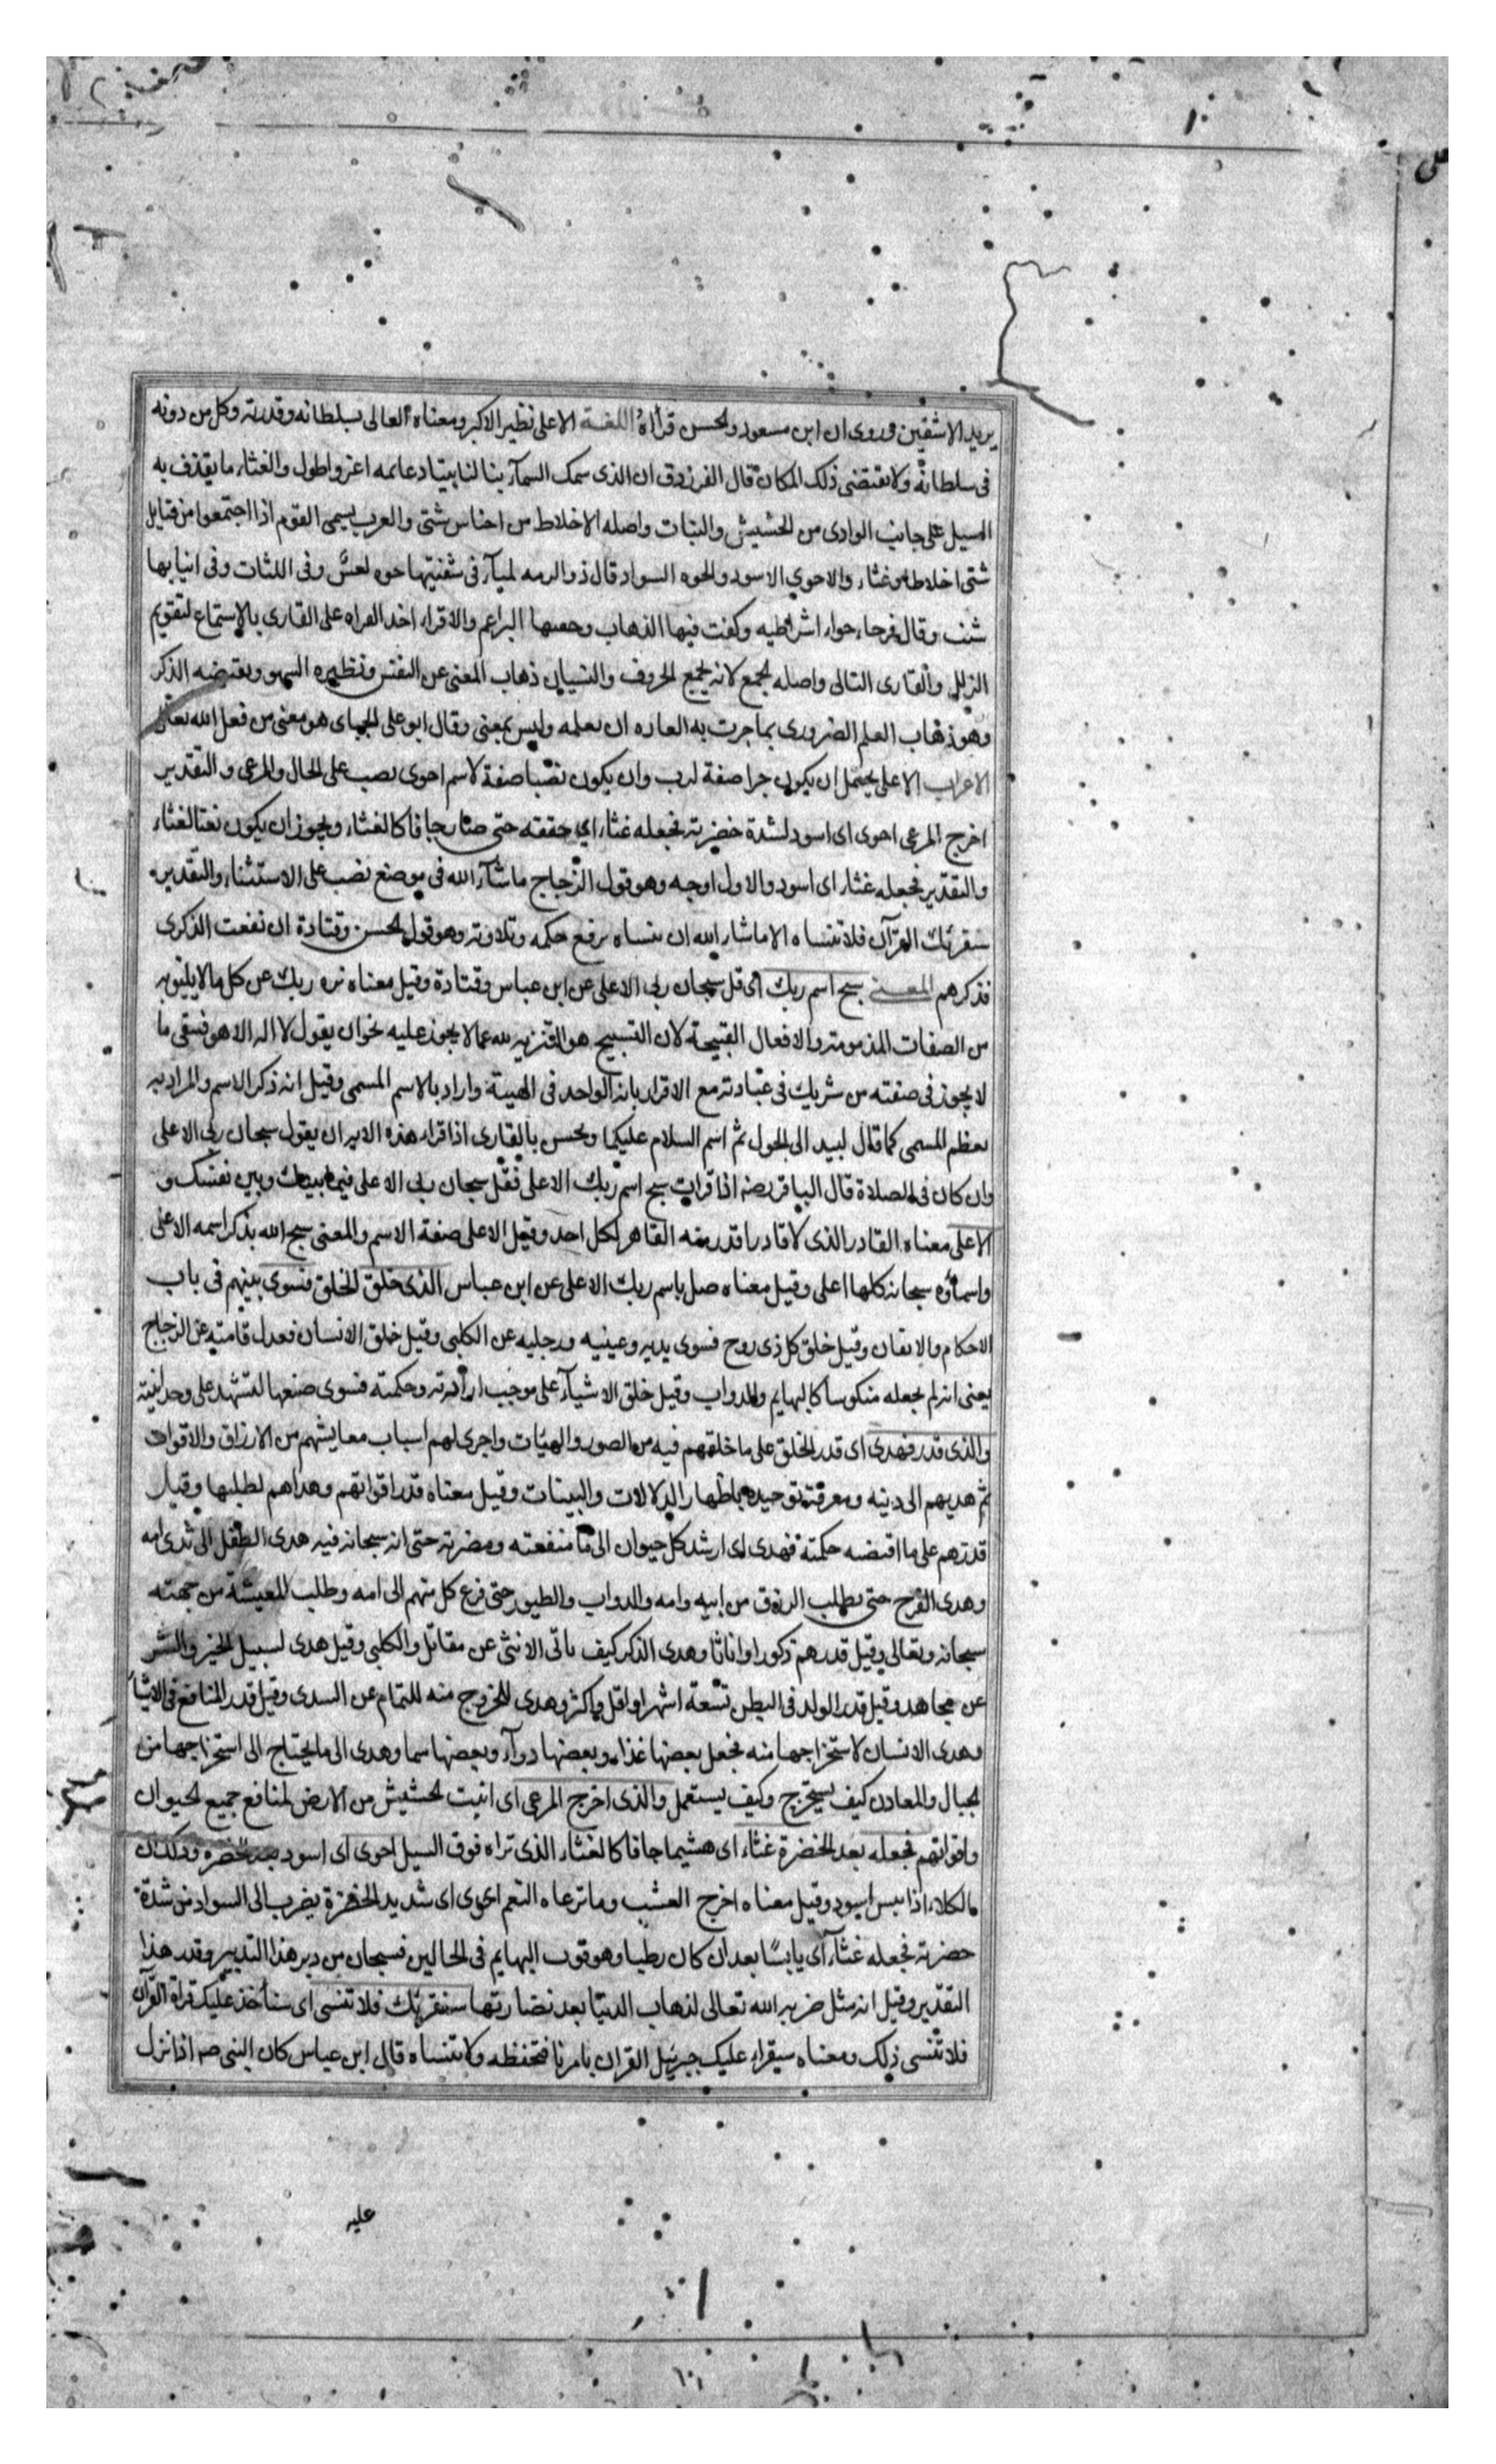 يريد الاشقين وروى ان ابن مسعود والحسن قرأاه اللغة الاعلى نظير الاكبر ومعناه العالى بسلطانه وقدرته وكل من دونه
فى سلطانه ولا تقتضى ذلك المكان قال الفرزدق ان الذى سمك السمآء بنا لنا بيتا دعائمه اعز واطول والغثاء ما يقذف به
السيل على جانب الوادى من الحشيش والنبات واصله الاخلاط من اجناس شتى والعرب يسمى القوم اذا اجتمعوا من قبايل
شتى اخلاطا وغثاء والاحوي الاسود والحوه السواد قال ذو الرمه لميآء فى شفتيها حوه لعس وفى اللثات وفى انيابها
شنب وقال قرحاء حواء اشراطيه وكفت فيها الذهاب وحفتها البراعم والاقراء اخذ القراه على القارى بالاستماع لتقويم
الزلل والقارى التالى واصله الجمع لانه يجمع الحروف والنسيان ذهاب المعنى عن النفس ونظيره السهو ونقيضه الذكر
وهو ذهاب العلم الضرورى بما جرت به العاده ان يعلمه وليس بمعنى وقال ابو على الجباى هو معنى من فعل الله تعالى
الاعراب الاعلى يحتمل ان يكون جرا صفة لرب وان يكون نصبا صفة لاسم احوى نصب على الحال والمرعى و التقدير
اخرج المرعى احوى اى اسود لشدة خضرته فجعله غثاء اي جففته حتى صار جافا كالغثاء ويجوز ان يكون نعتا لغثاء
والتقدير فجعله غثاء اى اسود والاول اوجه وهو قول الزجاج ما شآء الله فى موضع نصب على الاستثناء والتقدير
سنقرئك القرآن فلا تنساه الا ما شاء الله ان تنساه برفع حكمه وتلاوته وهو قول الحسن وقتادة ان نفعت الذكرى
فذكرهم المعنى سبح اسم ربك اى قل سبحان ربى الاعلى عن ابن عباس وقتادة وقيل معناه نزه ربك عن كل ما لا يليق به
من الصفات المذمومة والافعال القبيحة لان التسبيح هو التنزيه لله عما لا يجوز عليه نحو ان يقول لا اله الا هو فنبقى ما
لا يجوز فى صفته من شريك فى عبادته مع الاقرار بانه الواحد فى الهيبة واراد بالاسم المسمى وقيل انه ذكر الاسم والمراد به
تعظم المسمى كما قال لبيد الى الحول ثم اسم السلام عليكما ويحسن بالقارى اذا قراء هذه الايه ان يقول سبحان ربى الاعلى
وان كان فى الصلاة قال الباقر رضه اذا قرات سبح اسم ربك الاعلى فقل سبحان ربى الاعلى فيما بينك وبين نفسك و
الاعلى معناه القادر الذى لا قادر اقدر منه القاهر لكل احد وقيل الاعلى صفة الاسم والمعنى سبح الله بذكر اسمه الاعلى
واسماؤه سبحانه كلها اعلى وقيل معناه صل باسم ربك الاعلى عن ابن عباس الذى خلق الخلق فسوى بينهم فى باب
الاحكام والاتقان وقيل خلق كل ذى روح فسوى يديه وعينيه ورجليه عن الكلبى وقيل خلق الانسان فعدل قامته عن الزجاج
يعنى انه لم يجعله منكوسا كالبهايم والدواب وقيل خلق الاشيآء على موجب ارادته وحكمته فسوى صنعها لتشهد على وحدانيته
والذى قدر فهدى اى قدر الخلق على ما خلقهم فيه من الصور والهيات واجرى لهم اسباب معايشهم من الارزاق والاقوات
ثم هديهم الى دينه ومعرفة توحيده باظهار الدلالات والبينات وقيل معناه قدر اقواتهم وهداهم لطلبها وقيل
قدرهم على ما اقتضه حكمته فهدى اى ارشد كل حيوان الى ما منفعته ومضرته حتى انه سبحانه فيه هدى الطفل الى ثدى امه
وهدى الفرح حتى يطلب الرزق من ابيه وامه والدواب والطيور حتى فزع كل منهم الى امه وطلب المعيشة من جهته
سبحانه وتعالى وقيل قدرهم ذكورا واناثا وهدى الذكر كيف ياتى الانثى عن مقاتل والكلبى وقيل هدى لسبيل الخير والشر
عن مجاهد وقيل قدر الولد فى البطن تسعة اشهر او اقل واكثر وهدى للخروج منه للتمام عن السدى وقيل قدر المنافع فى الاشيآ
وهدى الانسان لاستخراجها منه فجعل بعضها غذاء وبعضها دوآء وبعضها سما وهدى الى ما يحتاج الى استخراجها من
الجبال والمعادن كيف يستخرج وكيف يستعمل والذى اخرج المرعى اى انبت الحشيش من الارض لمنافع جميع الحيوان
واقواتهم فجعله بعد الخضرة غثاء اى هشيما جافا كالغثاء الذى تراه فوق السيل احوى اى اسود بعد الخضره وذلك ان
الكلاء اذا يبس اسود وقيل معناه اخرج العشب وما ترعاه النعم احوى اى شديد الخضرة يضرب الى السواد من شدة
خضرته فجعله غثاء آى يابسا بعد ان كان رطبا وهو قوت البهايم فى الحالين فسبحان من دبر هذا التدبير وقدر هذا
التقدير وقيل انه مثل ضربه الله تعالى لذهاب الدنيا بعد نضارتها سنقرئك فلا تنسى اى سنأخذ عليك قراة القرآن
فلا تنسى ذلك ومعناه سيقراء عليك جبرئيل القران بامرنا فتحفظه ولا تنساه قال ابن عباس كان النبى صم اذا نزل
عليه